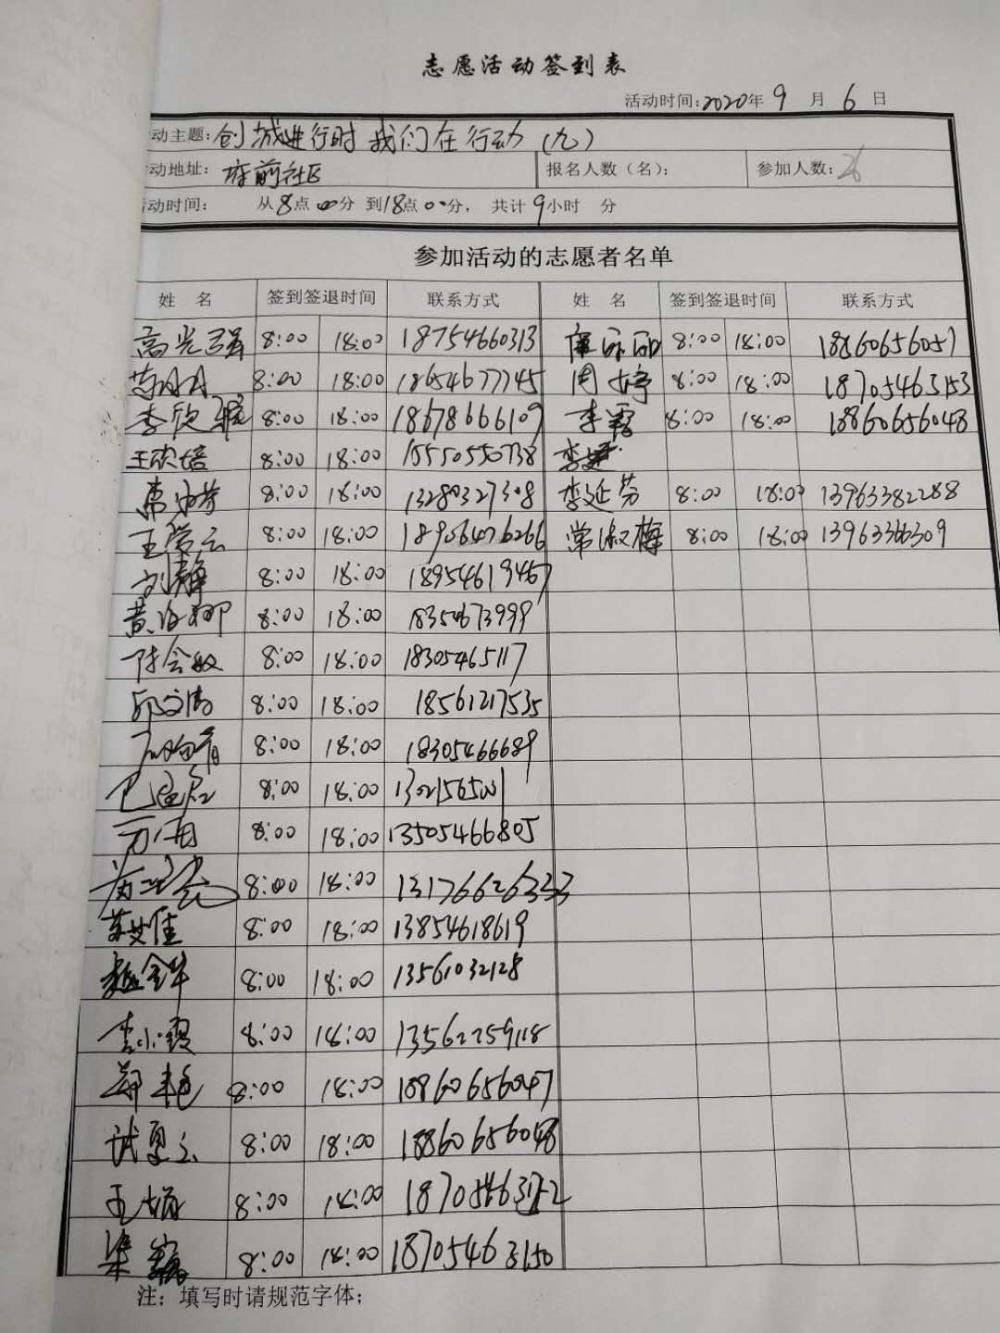 志愿活动签到表
活动时间:2020年 9 月 6 日
动主题:创城进行时 我们在行动(九)
动地址: 府前社区 报名人数(名): 参加人数:26
活动时间: 从8点00分 到18点00分, 共计9小时 分
参加活动的志愿者名单
姓 名 签到签退时间 联系方式 姓 名 签到签退时间 联系方式
高光强 8:00 18:00 18754660313 8:00 18:00 18860656057
8:00 18:00 18654677745 周婷 8:00 18:00 18705463153
李欣 8:00 18:00 18678666109 李霞 8:00 18:00 18860656048
王欣培 8:00 18:00 15550550738
8:00 18:00 13280327308 李延芬 8:00 18:00 13963382288
王爱云 8:00 18:00 18956476266 常淑梅 8:00 18:00 13963366309
刘静 8:00 18:00 18954619467
黄 8:00 18:00 18350673999
陈会敏 8:00 18:00 18305465117
邱文浩 8:00 18:00 18561217535
8:00 18:00 18305466689
8:00 18:00
8:00 18:00 13505466805
8:00 18:00 13176626333
苏艾佳 8:00 18:00 13854618619
赵金华 8:00 18:00 13561032128
李小霞 8:00 18:00 13562259118
郑丰艳 8:00 18:00 18860656047
8:00 18:00 18860656048
王娟 8:00 18:00
梁 8:00 18:00 18705463150
注: 填写时请规范字体;